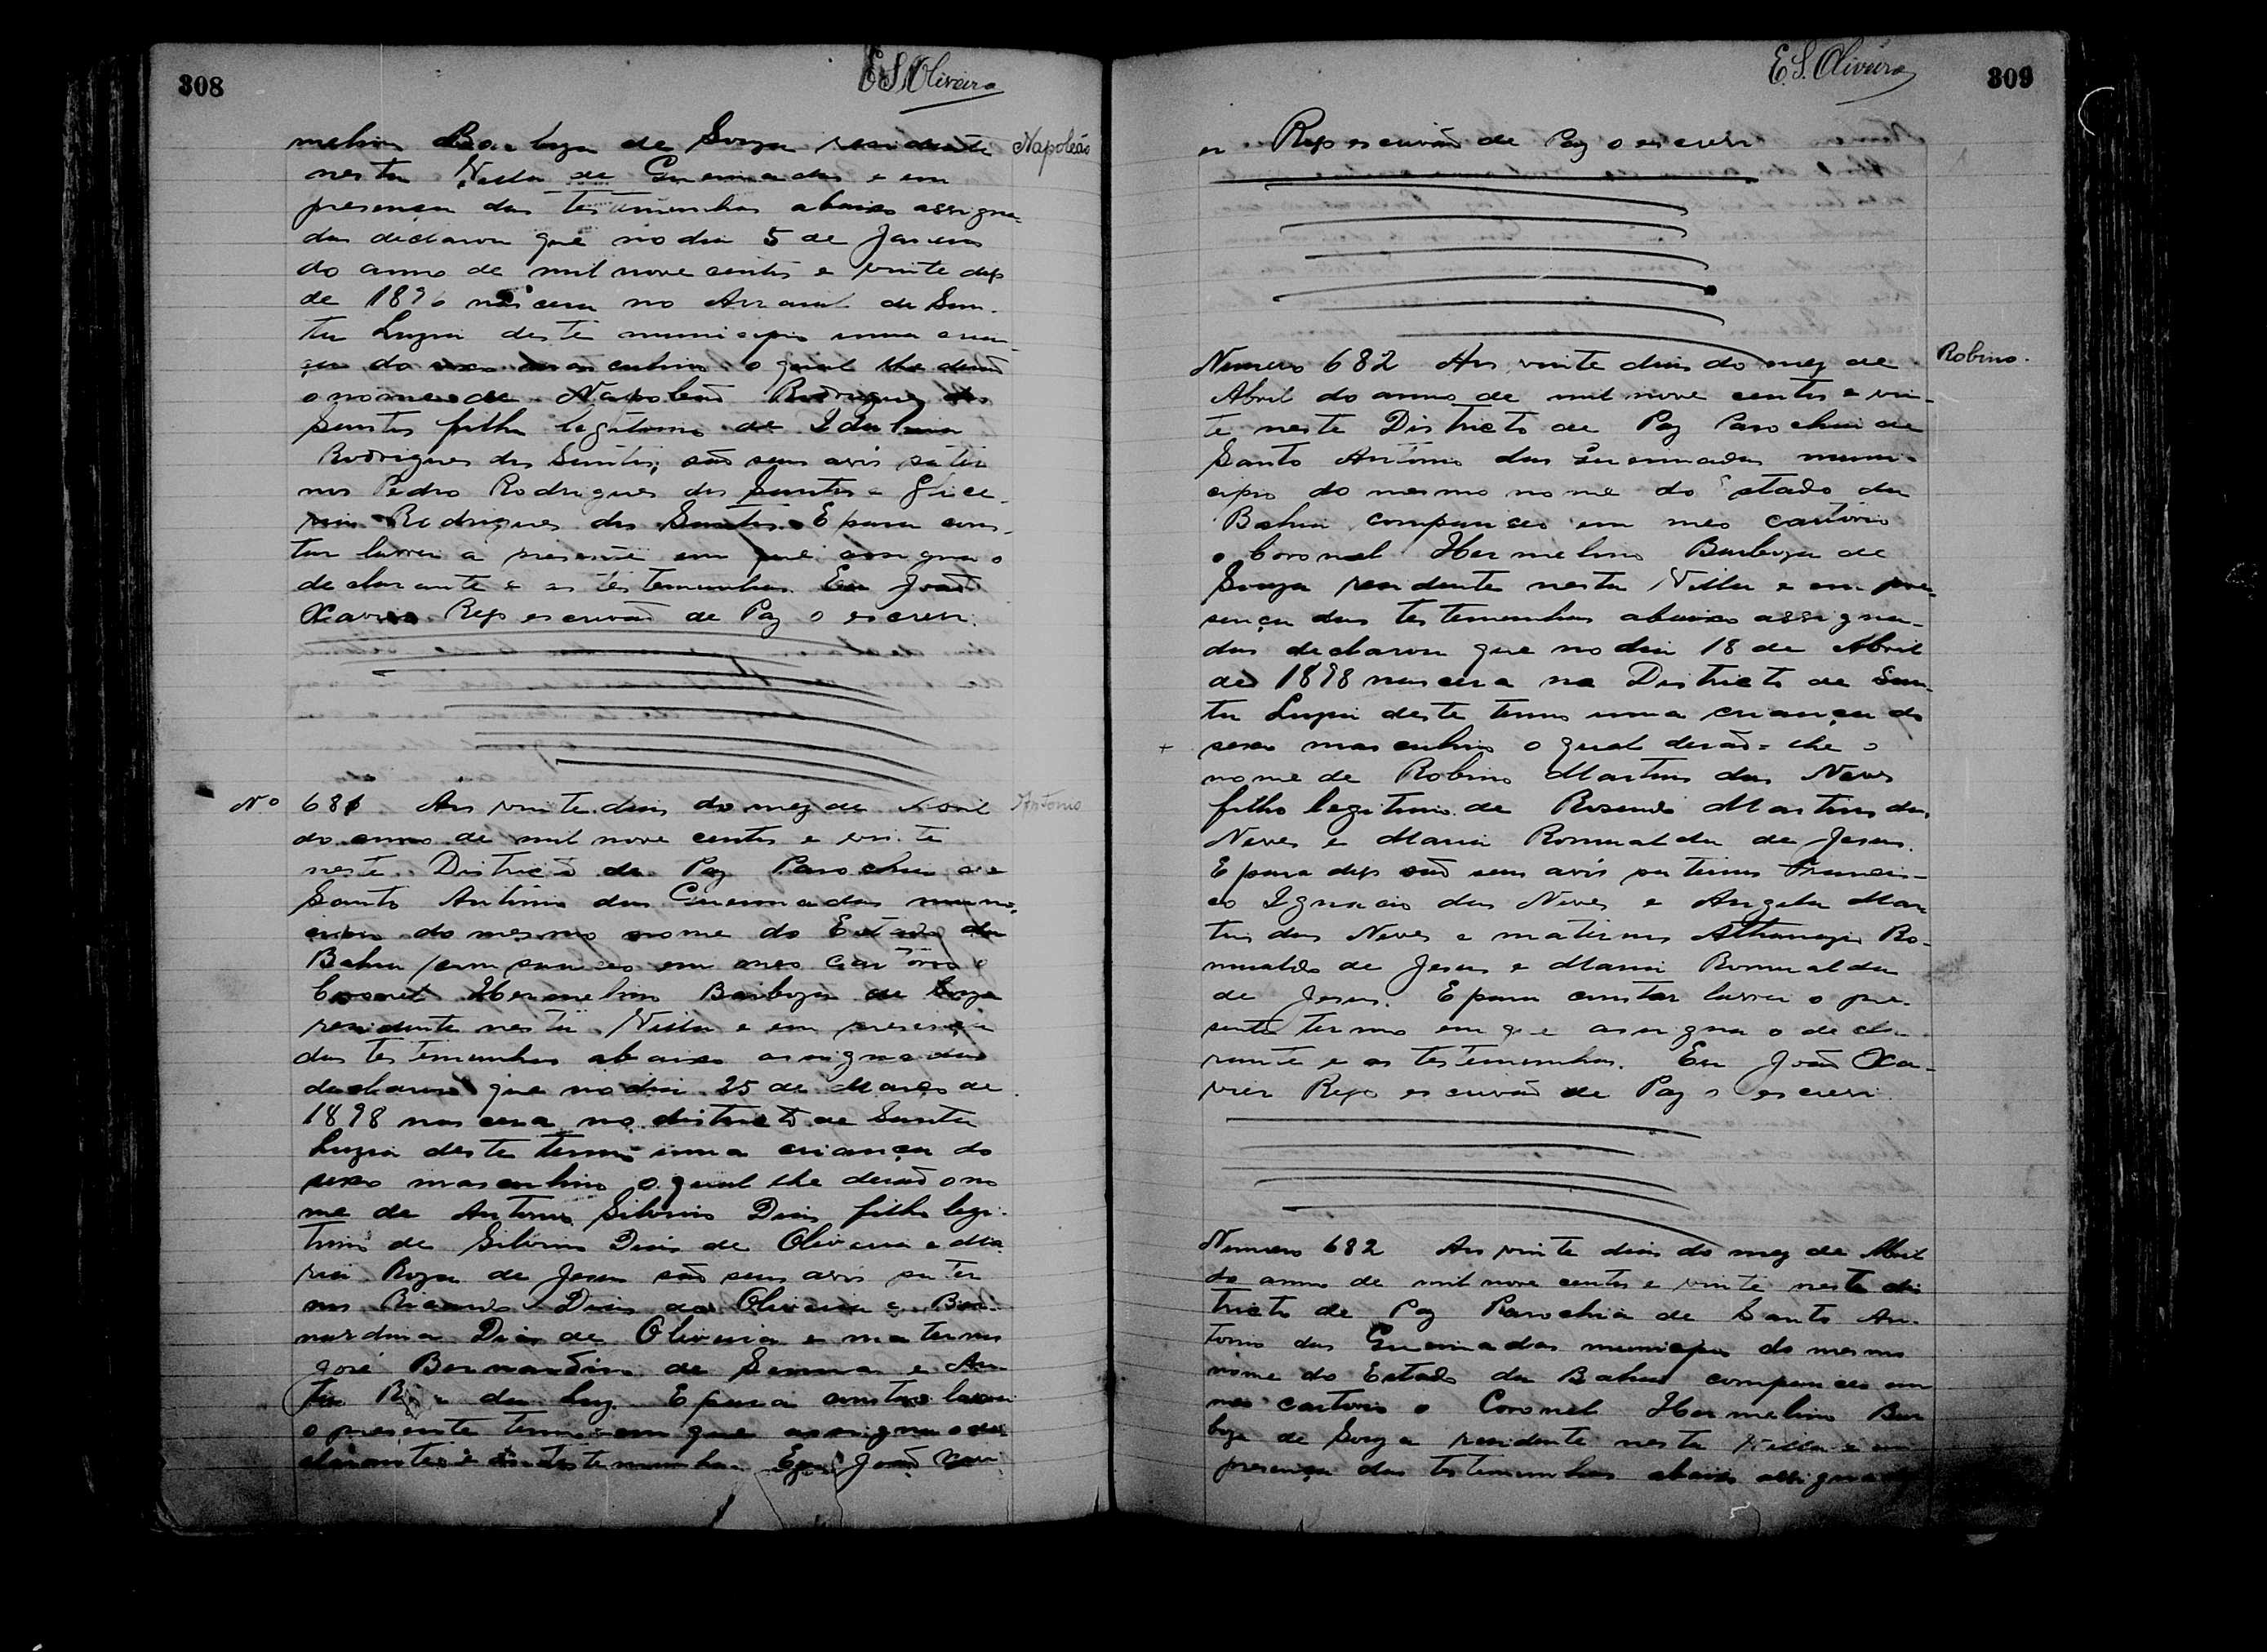 308
E.S. Oliveira
melino Barboza de Souza residente
Napoleão
nesta Villa de Queimadas e em
presença das testemunhas abaixo assigna-
das declarou que no dia 5 de Janeiro
do anno de mil nove centos e vinte digo
de 1890 nascera no Arraial de San-
ta Luzia deste municipio uma crian-
ça do sexo masculino o qual lhe derão
o nome de Napoleão Rodrigues dos
Santos filho legitimo de Idalina
Rodrigues dos Santos, são seus avós pater
nos Pedro Rodrigues dos Santos e
Rodrigues dos Santos. E para cons-
tar lavrei a presente em que assigna o
declarante e as testemunhas. Eu João
Xavier Rego escrivão de Paz o escrevi.
Nº 681 Aos vinte dias do mez de Abril
Antonio
do anno de mil nove centos e vinte
neste Districto de Paz Parochia de
Santo Antonio das Queimadas muni-
cipio do mesmo nome do Estado da
Bahia compareceo em meo Cartorio o
Coronel Hermelino Barboza de Souza
residente nesta Villa e em presença
das testemunhas abaixo assignadas
declarou que no dia 25 de Março de
1898 nascera no districto de Santa
Luzia deste termo uma criança do
sexo masculino o qual lhe derão o no
me de Antonio Silvino Dias filho legi-
timo de Silvino Dias de Oliveira e Ma-
ria Roza de Jesus são seus avós pater
nos Ricardo Dias de Oliveira e Ber-
nardina Dias de Oliveira e maternos
José Bernardino de Senna e An-
da Luz. E para constar lavrei
o presente termo em que assigna o de-
clarante e as testemunhas. Eu João Xavi
E.S. Oliveira
309
er Rego escrivão de Paz o escrevi
Numero 682 Aos vinte dias do mez de
Robino.
Abril do anno de mil nove centos e vin-
te neste Districto de Paz Parochia de
Santo Antonio das Queimadas muni-
cipio do mesmo nome do Estado da
Bahia compareceo em meo cartorio
o Coronel Hermelino Barboza de
Souza residente nesta Villa e em pre-
sença das testemunhas abaixo assigna-
das declarou que no dia 18 de Abril
de 1898 nascera no Districto de San-
ta Luzia deste termo uma criança do
+ sexo masculino o qual derão-lhe o
nome de Robino Martins das Neves
filho legitimo de Rosendo Martins das
Neves e Maria Romualda de Jesus.
E para digo são seus avós paternos Francis-
co Ignacio das Neves e Angela Mar
tins das Neves e maternos Athanazio Ro-
mualdo de Jesus e Maria Romualda
de Jesus. E para constar lavrei o pre-
sente termo em que assigna o decla-
rante e as testemunhas. Eu João Xa-
vier Rego escrivão de Paz o escrevi.
Numero 682 Aos vinte dias do mez de Abril
do anno de mil nove centos e vinte neste dis
tricto de Paz Parochia de Santo An-
tonio das Queimadas municipio do mesmo
nome do Estado da Bahia compareceo em
meo cartorio o Coronel Hermelino Bar
boza de Souza residente nesta Villa e em
presença das testemunhas abaixo assignadas